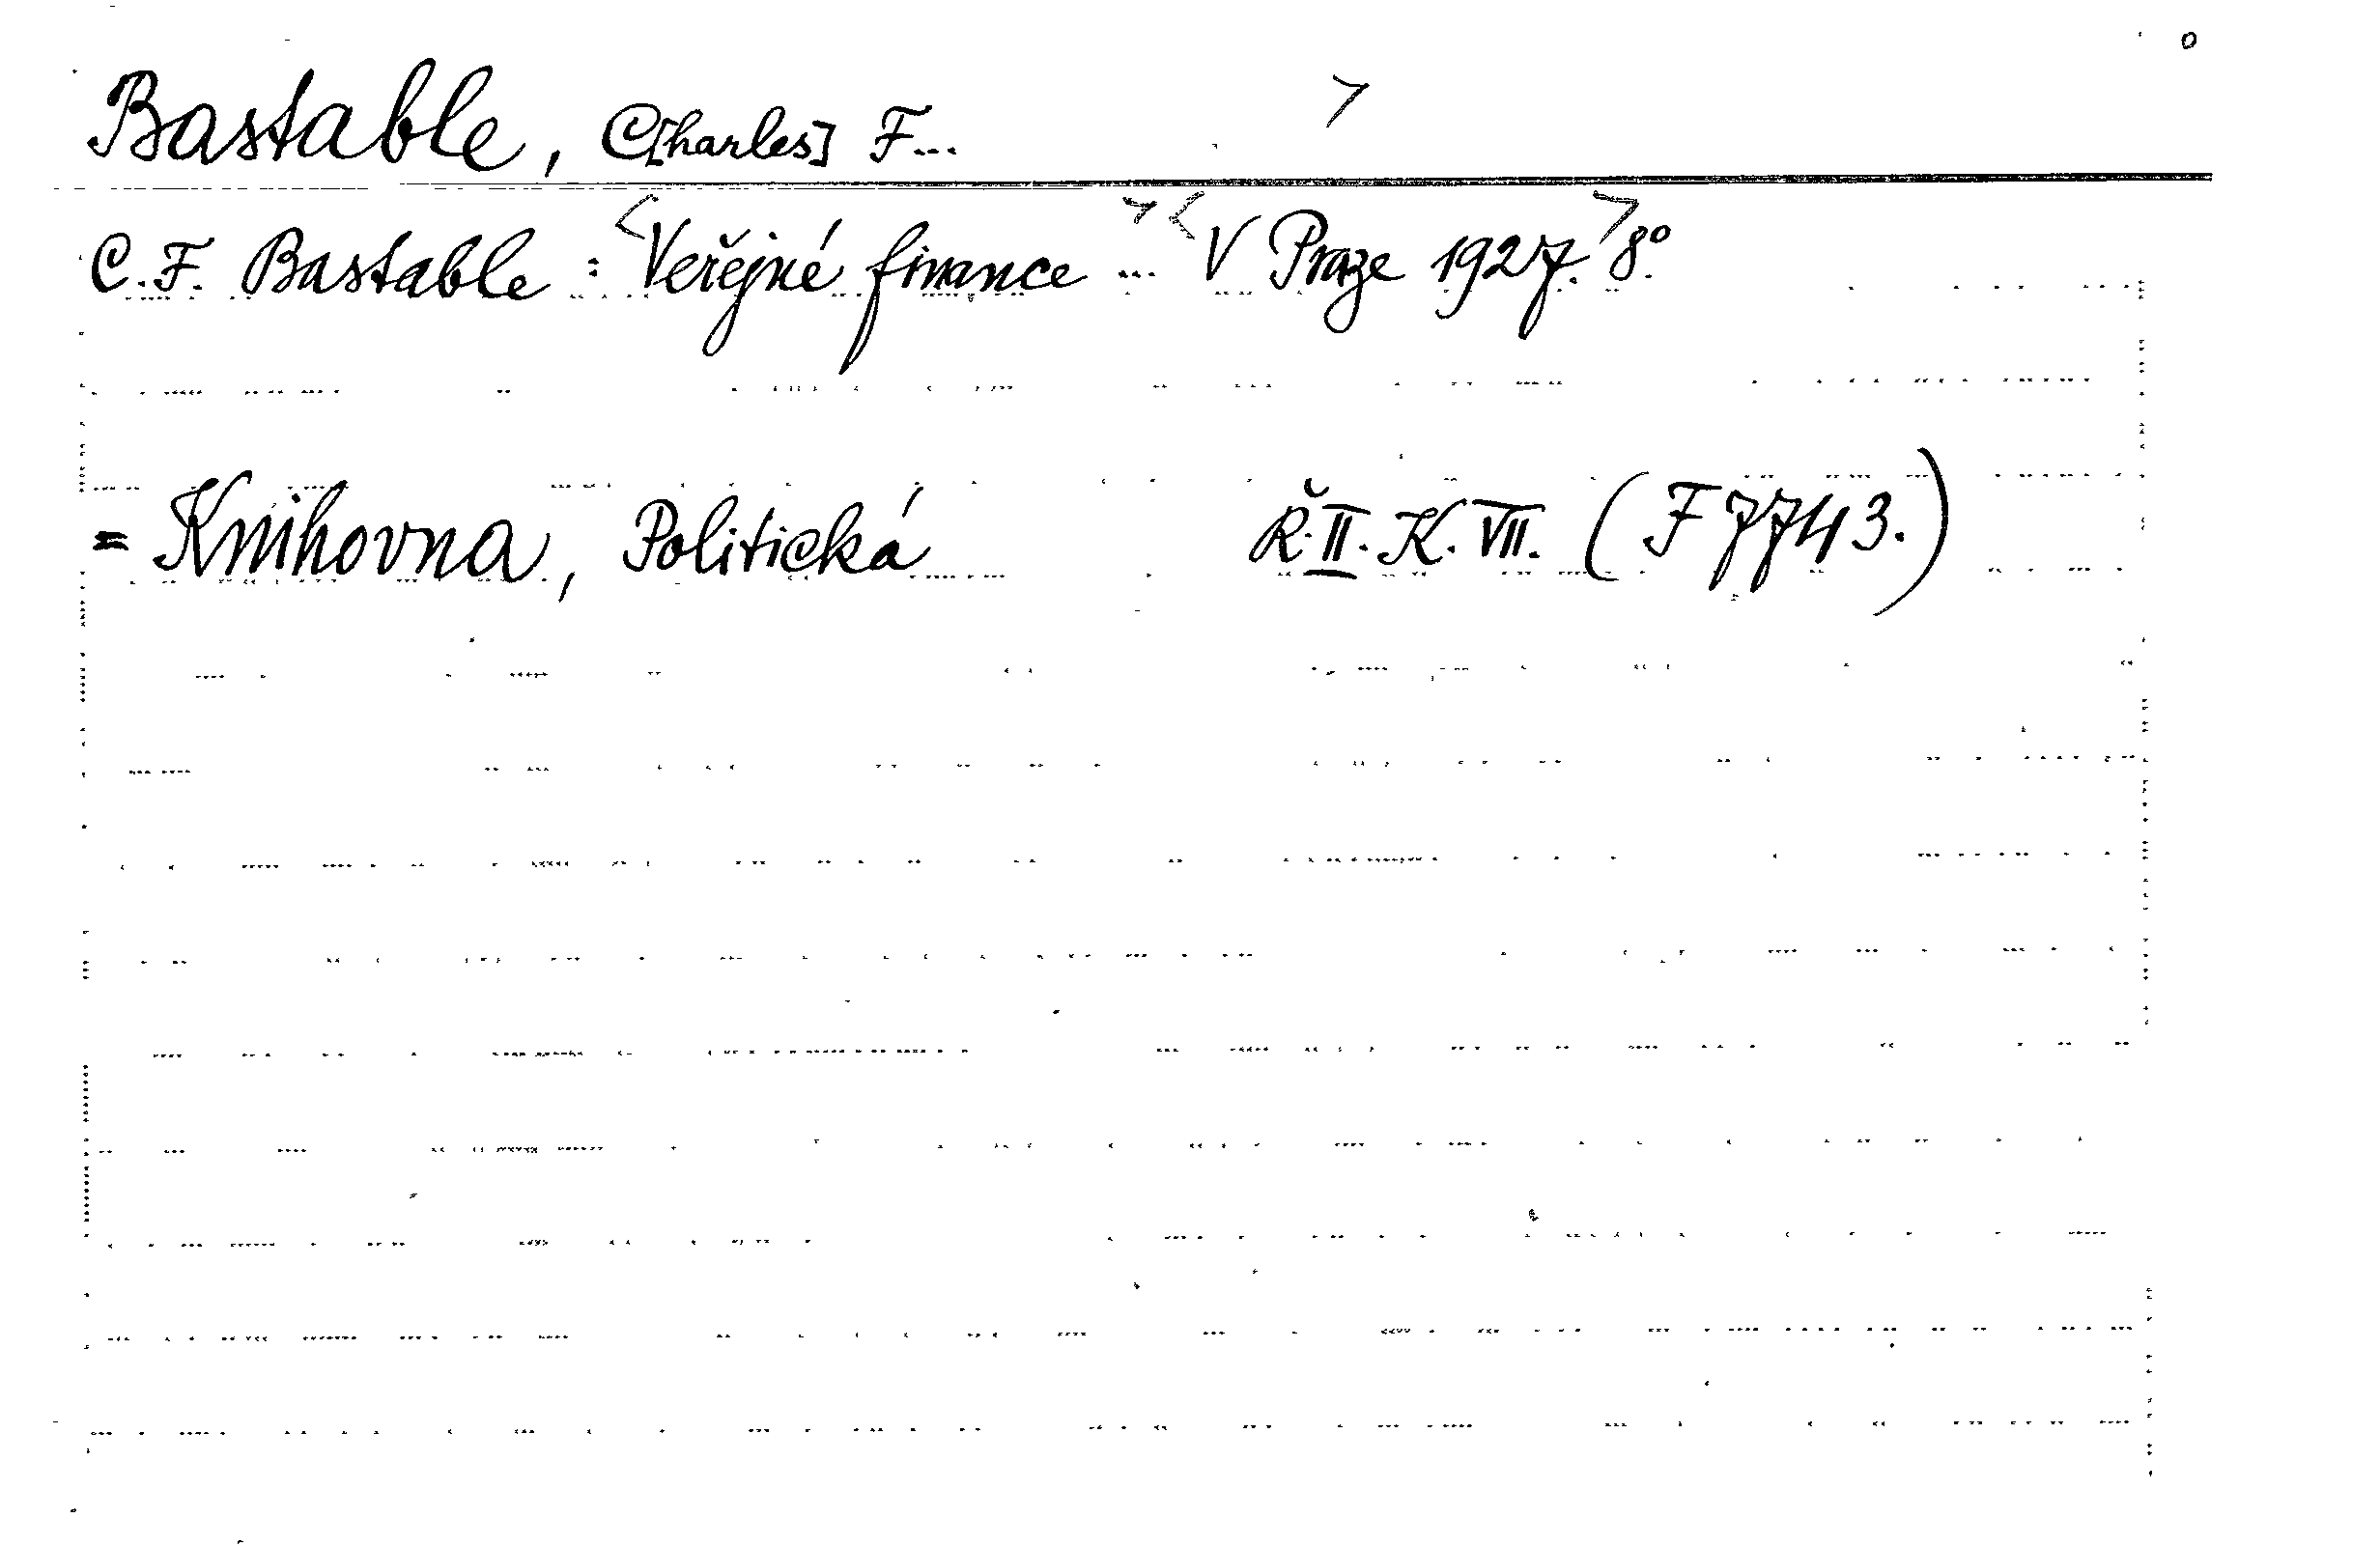 Bastable, C[harles] F...
C. F. Bastable: <Veřejné finance ...> <V Praze 1927.> 8°.
= Knihovna, Politická Ř. II. K. VII. (F 7743.)